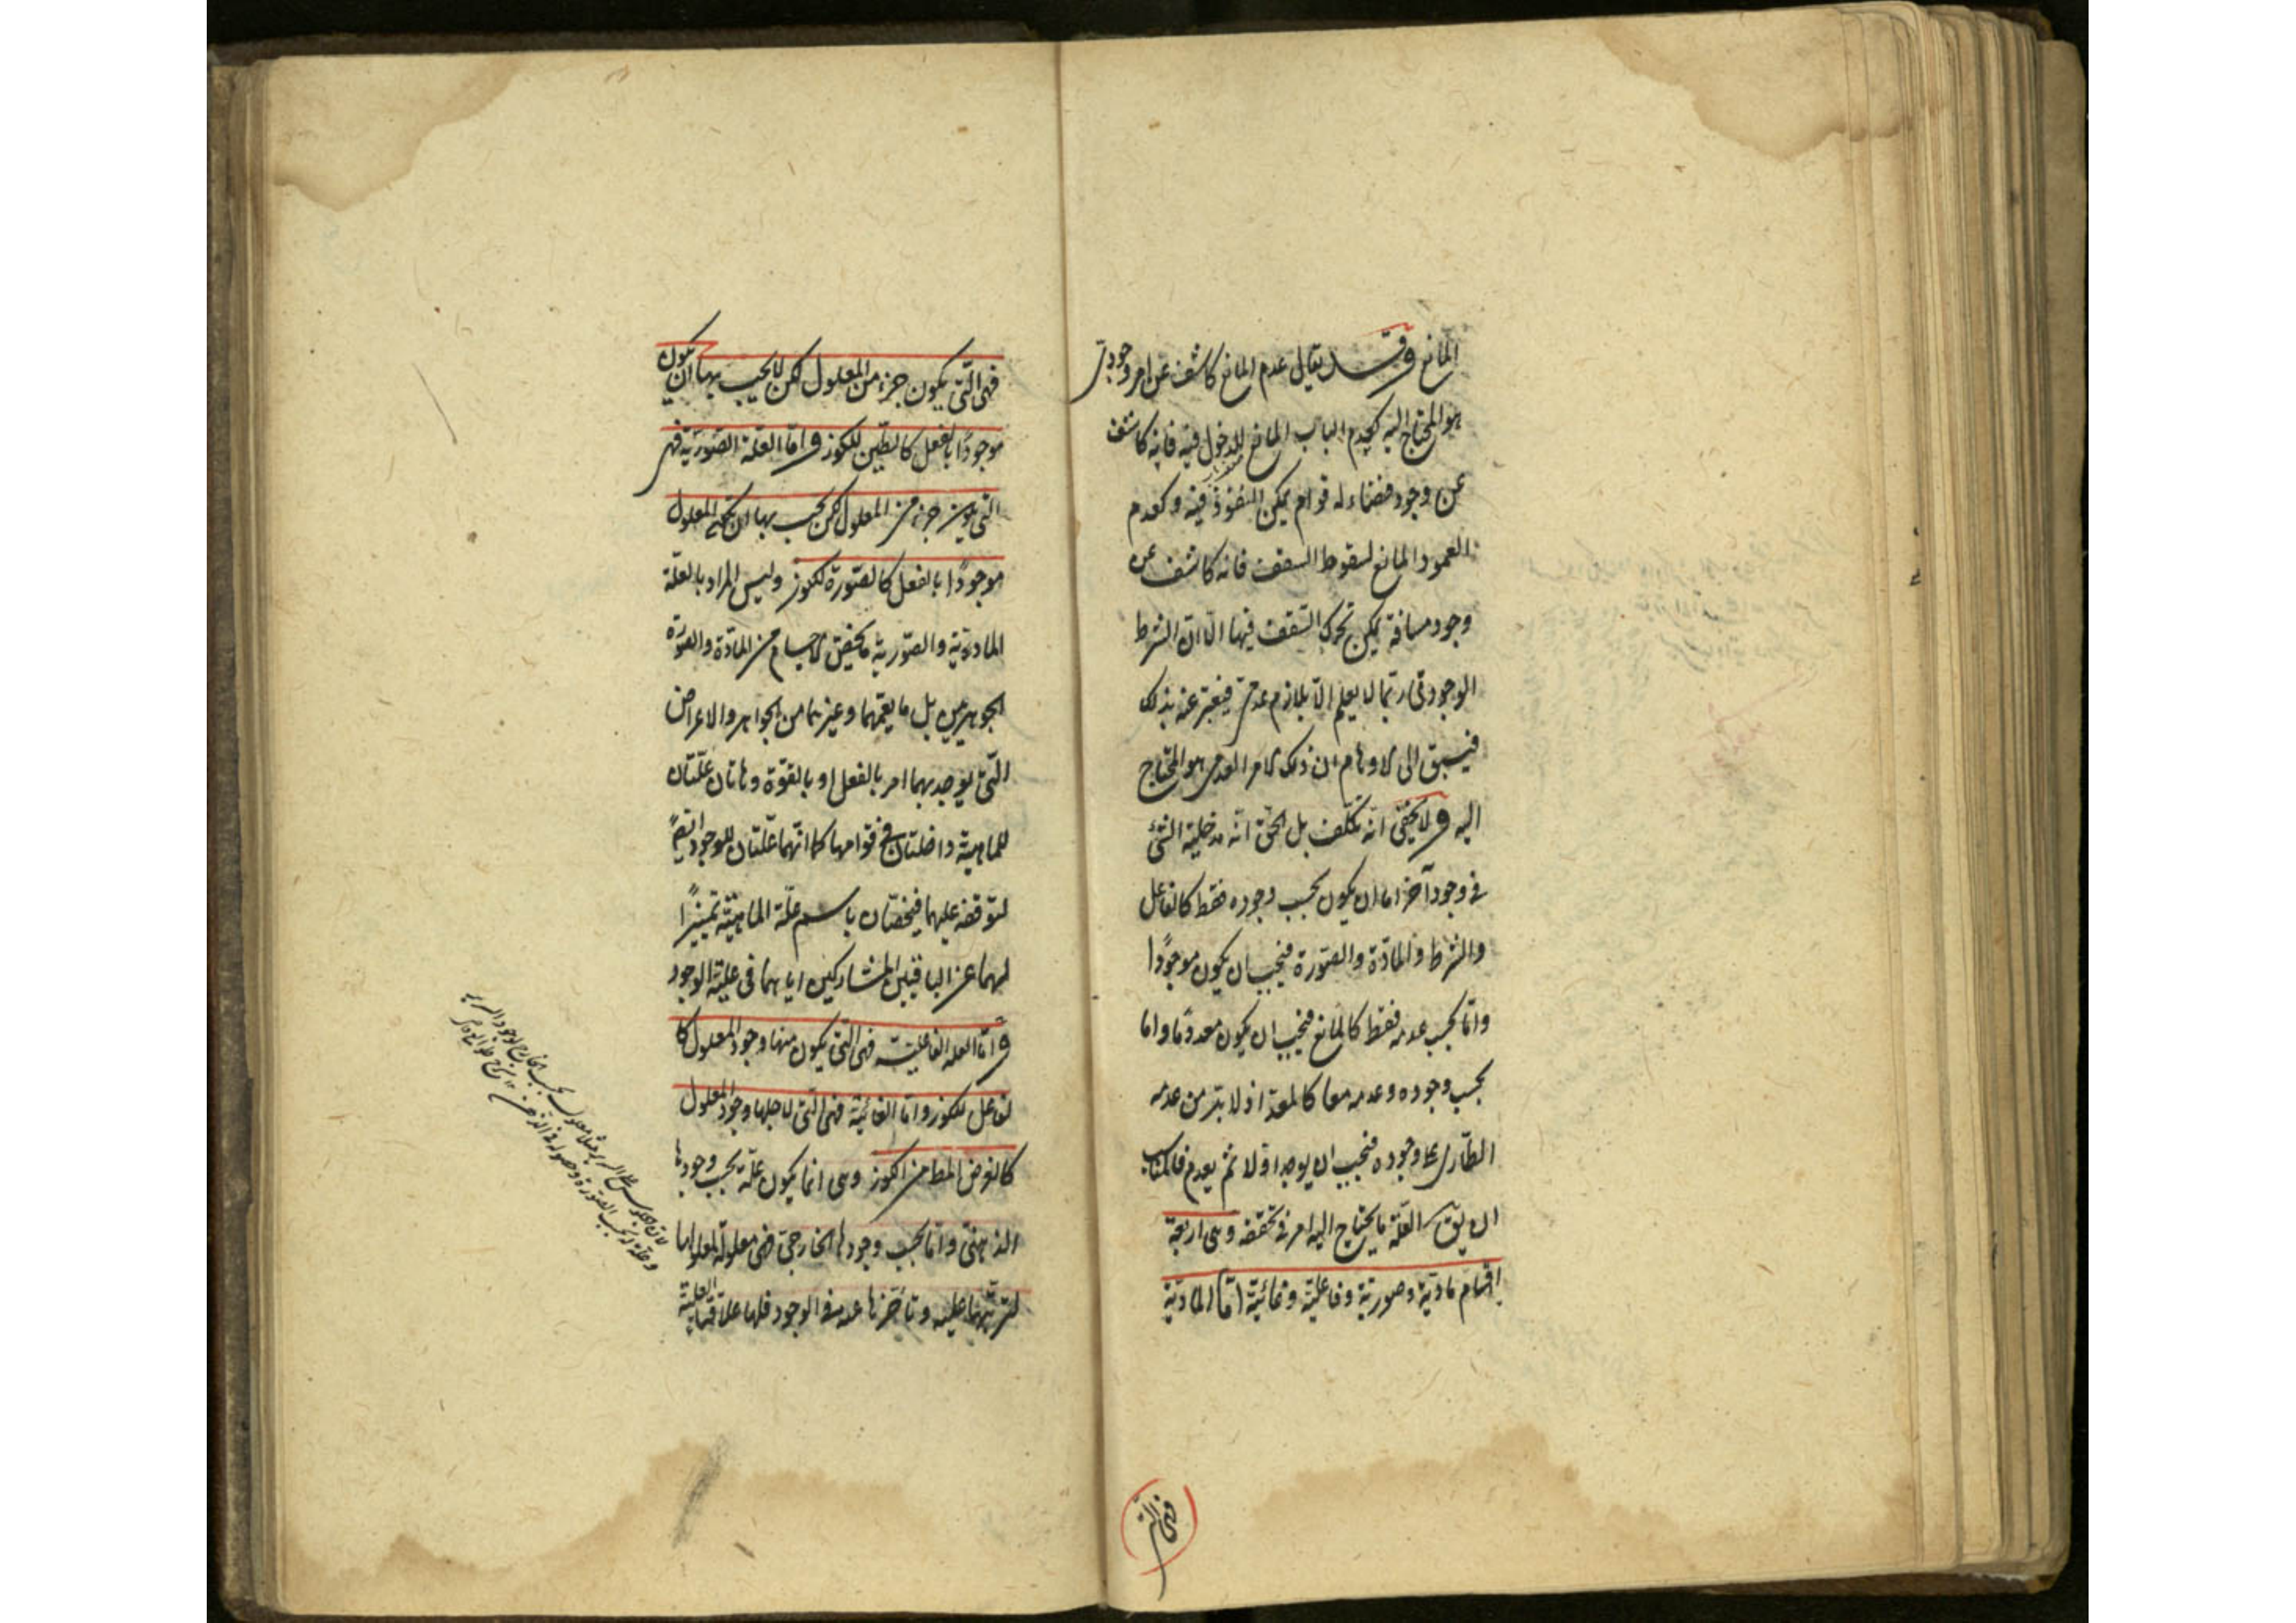 المانع وقد يقال عدم المانع كاشف عن امر وجودى
هو المحتاج اليه كعدم الباب المانع للدخول فيه فانه كاشف
عن وجود فضاء له قوام يمكن النفوذ فيه وكعدم
العمود المانع لسقوط السقف فانه كاشف عن
وجود مسافة يمكن تحرك السقف فيها الا ان الشرط
الوجودى ربما لا يعلم الا بلازم عدمى فيعبر عنه بذلك
فيسبق الى الاوهام ان ذلك الامر العدمى هو المحتاج
اليه ولا يخفى انه تكلف بل الحق انه مدخلية الشئ
فى وجود آخر اما ان يكون بحسب وجوده فقط كالفاعل
والشرط والمادّة والصّورة فيجب ان يكون موجودًا
واما بحسب عدمه فقط كالمانع فيجب ان يكون معدومًا واما
بحسب وجوده وعدمه معا كالمعد اذ لا بد من عدمه
الطارى على وجوده فيجب ان يوجد اولا ثم يعدم فالمناسب
ان يق العلّة ما يحتاج اليه امر فى تحققه وهى اربعة
اقسام ماديّة وصوريّة وفاعليّة وغائيّة امّا المادّية
فهى التى
فهى التى يكون جزء من المعلول لكن لا يجب بها ان يكون
موجودًا بالفعل كالطين للكوز واما العلّة الصّوريّة فهى
التى يكون جزء من المعلول لكن يجب بها ان يكون المعلول
موجودًا بالفعل كالصّورة للكوز وليس المراد بالعلّة
المادّية والصّوريّة ما يختص الاجسام من المادّة والصورة
الجوهريين بل ما يعمّهما وغيرهما من الجواهر والاعراض
التى يوجد بهما امر بالفعل او بالقوّة وهاتان علّتان
للماهيّة داخلتان فى قوامها كما انّهما علّتان للوجود ايضًا
لتوقفه عليهما فيخصّان باسم علّة الماهيّة تمييزًا
لهما عن الباقيين المشاركين اياهما فى عليّة الوجود
وامّا العلة الفاعليّة فهى التى يكون منها وجود المعلول كا
لفاعل للكوز واما الغائيّة فهى التى لاجلها وجود المعلول
كالغرض المط من الكوز وهى انما يكون علّة بحسب وجودها
الذهنى وامّا بحسب وجودها الخارجى فهى معلولة لمعلولها
لترتّبها عليه وتأخّرها عنه فى الوجود فلها علاقتا العليّة